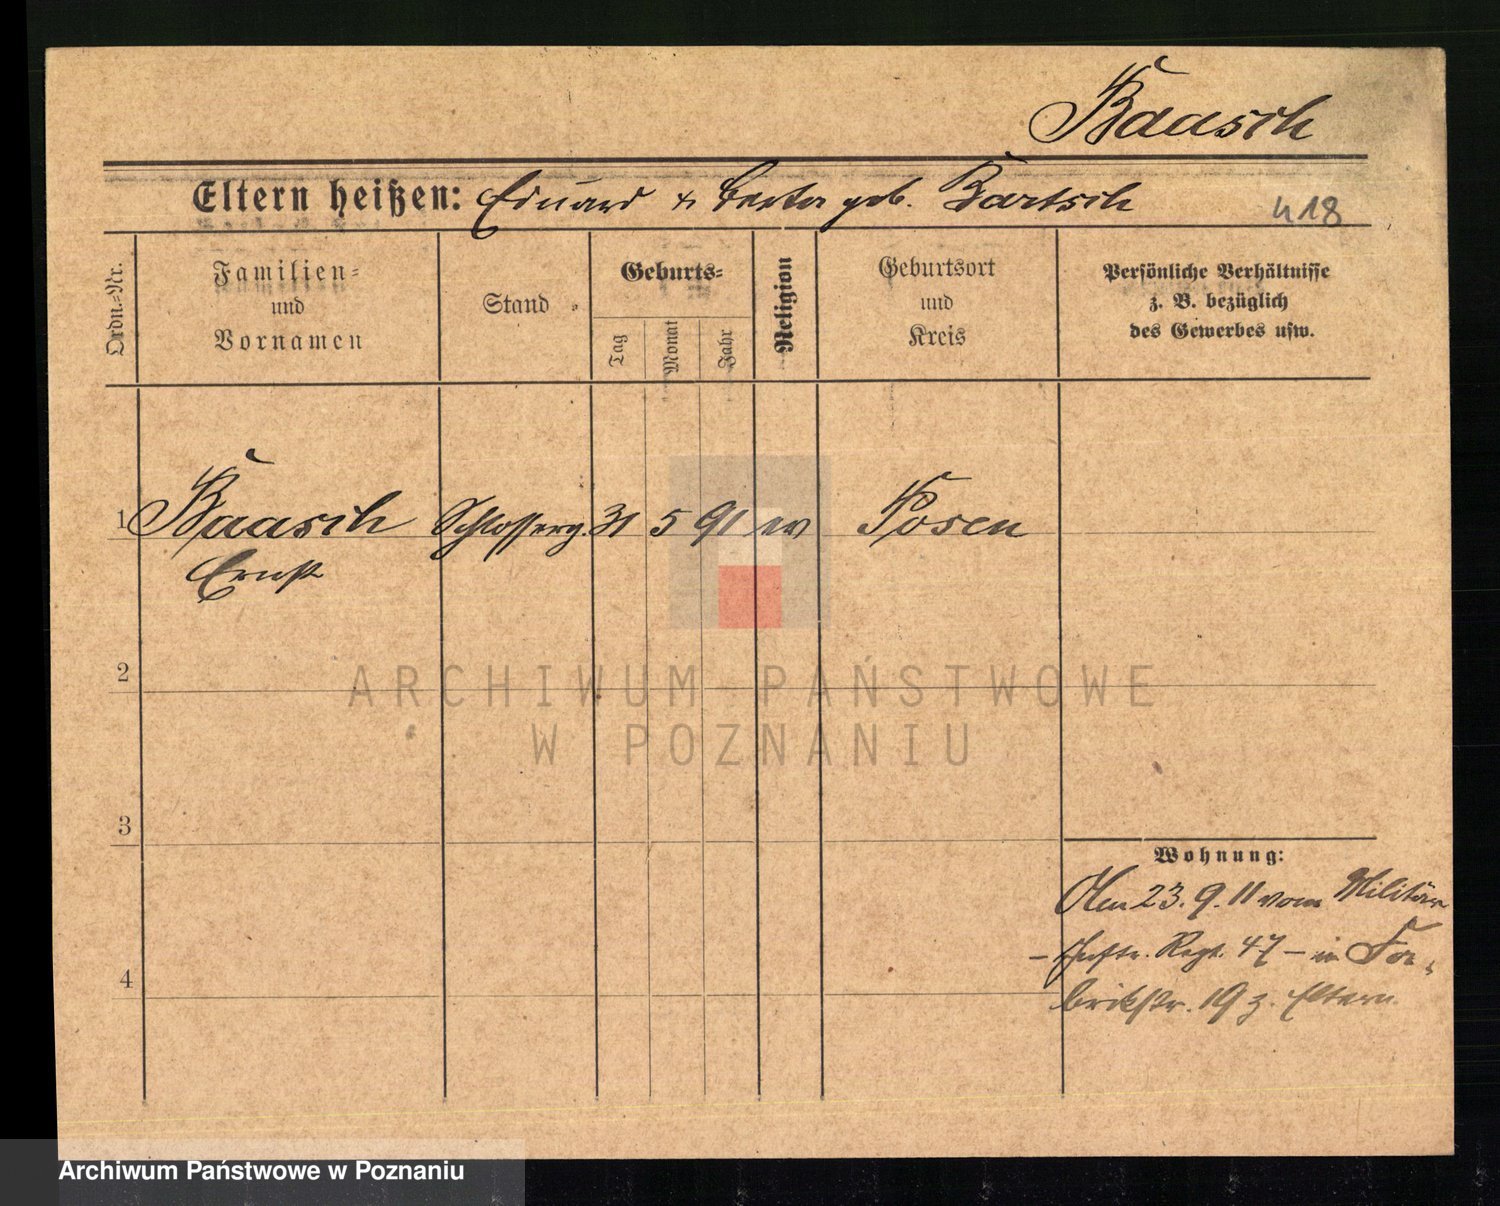 Baasch
Eltern heißen: Eduard & Berta geb. Bartsch
418
Ordn.-Nr.
Familien-
und
Vornamen
Stand
Geburts-
Tag
Monat
Jahr
Religion
Geburtsort
und
Kreis
Persönliche Verhältnisse
z. B. bezüglich
des Gewerbes usw.
1 Baasch Schlosserg. 31 5 91 ev Posen
Ernst
2
ARCHIWUM PAŃSTWOWE
W POZNANIU
3
Wohnung:
23. 9. 11 vom Militär
- Inftr. Regt. 47 - in Fa-
brikstr. 19 z. Eltern
4
Archiwum Państwowe w Poznaniu